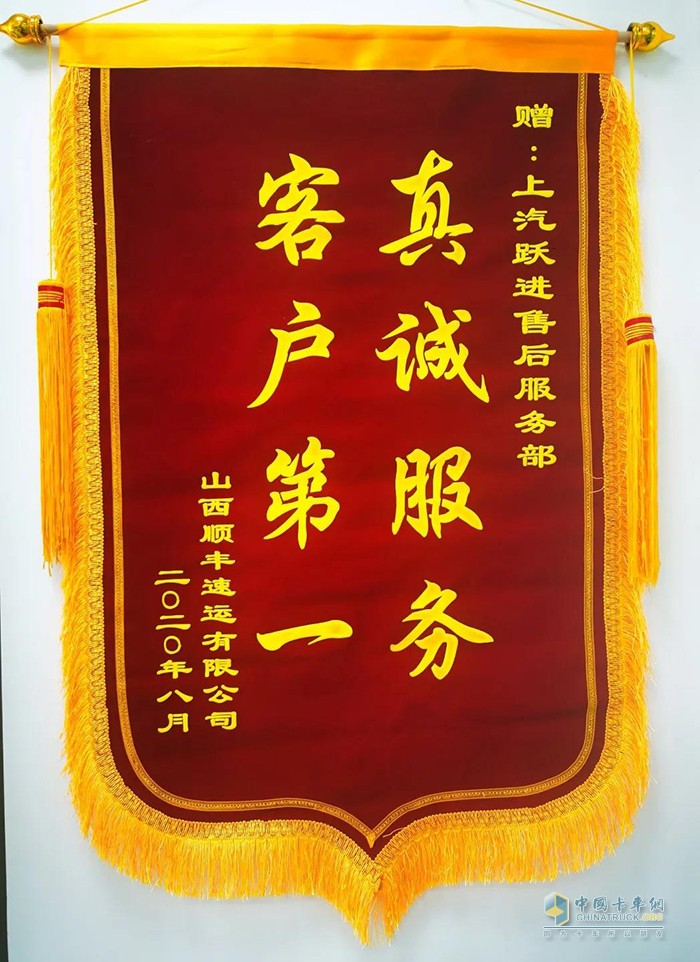 赠：上汽跃进售后服务部
真诚服务
客户第一
山西顺丰速运有限公司
二〇二〇年八月
中国卡车网
CHINATRUCK.ORG